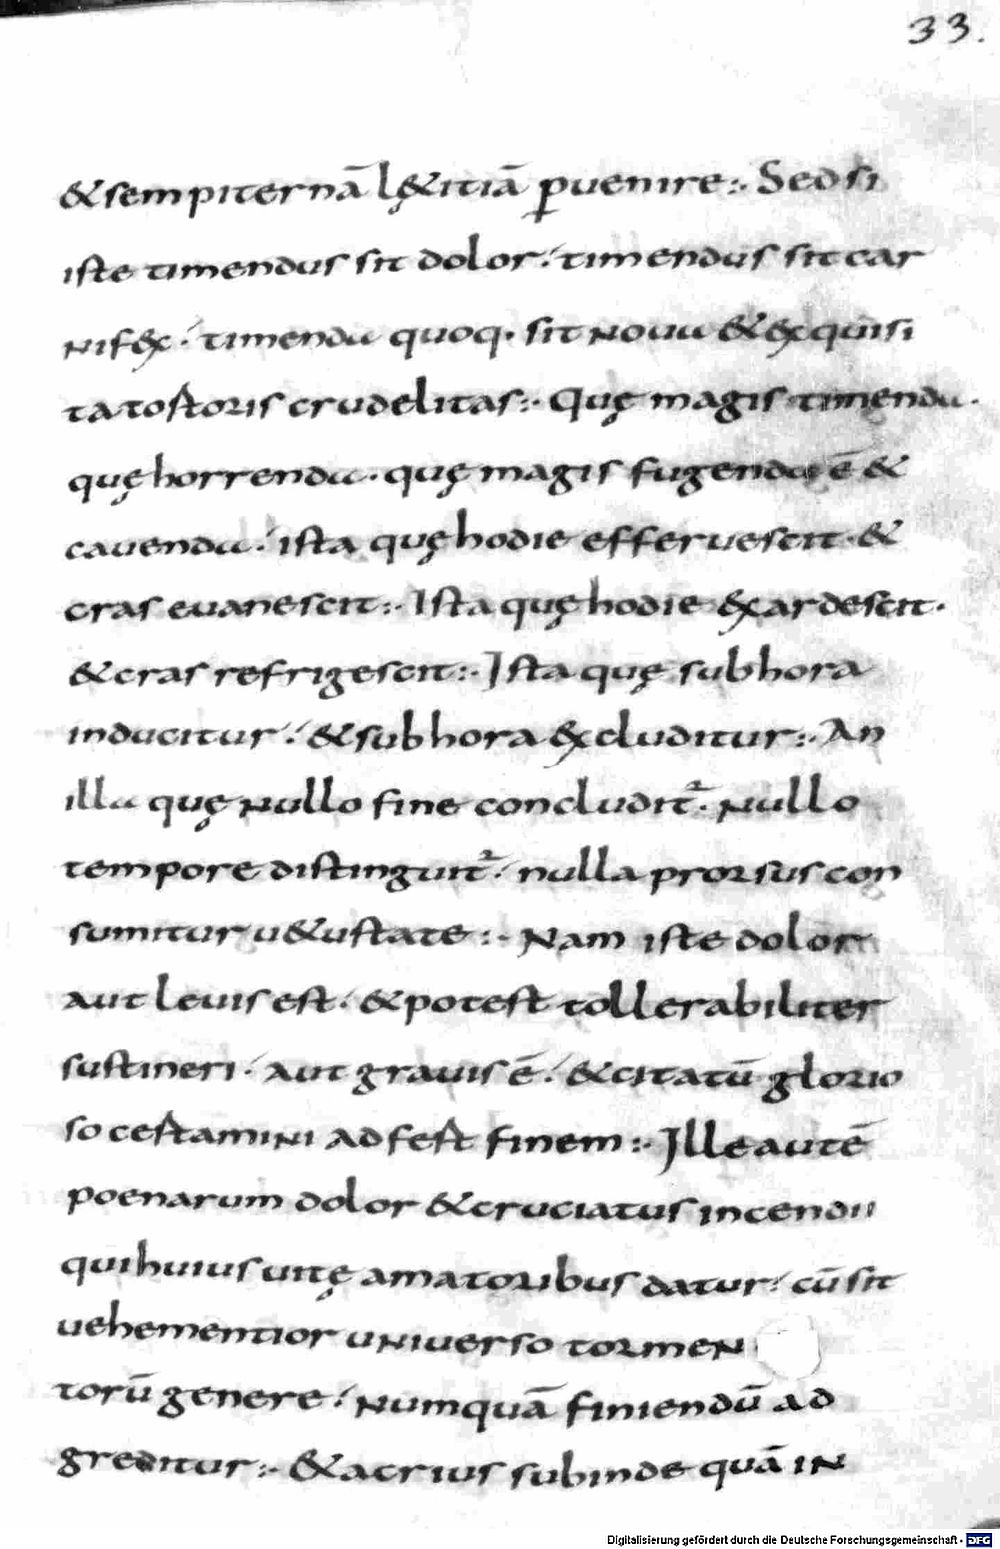 33.
&sempiternā lę&itiā ꝑuenire:· Sed si
iste timendus sit dolor·́ timendus sit car
nifęx·́ timenda quoq· sit noua & ęxquisi
ta tostoris crudelitas:· Quę magis timenda·
quę horrenda· quę magis fugenda ē &
cauenda·́ ista quę hodie efferuescit· &
cras euanescit:· Ista quę hodie ęxardescit·
& cras refrigescit:· Ista quę sub hora
inducitur·́ & sub hora ęxcluditur:· An
illa quę nullo fine concludit᷑· nullo
tempore distinguit᷑·́ nulla prorsus con
sumitur u&ustate:· Nam iste dolor
aut leuis est·́ & potest tollerabiliter
sustineri·́ aut grauis ē·́ & citatū glorio
so cestamini adfest finem:· Ille autē
poenarum dolor & cruciatus incendii
qui huius uitę amatoribus datur·́ cū sit
uehementior uniuerso tormen
torū genere·́ numquā finiendū ad
greditur:· & acrius subinde quā in
Digitalisierung gefördert durch die Deutsche Forschungsgemeinschaft - DFG